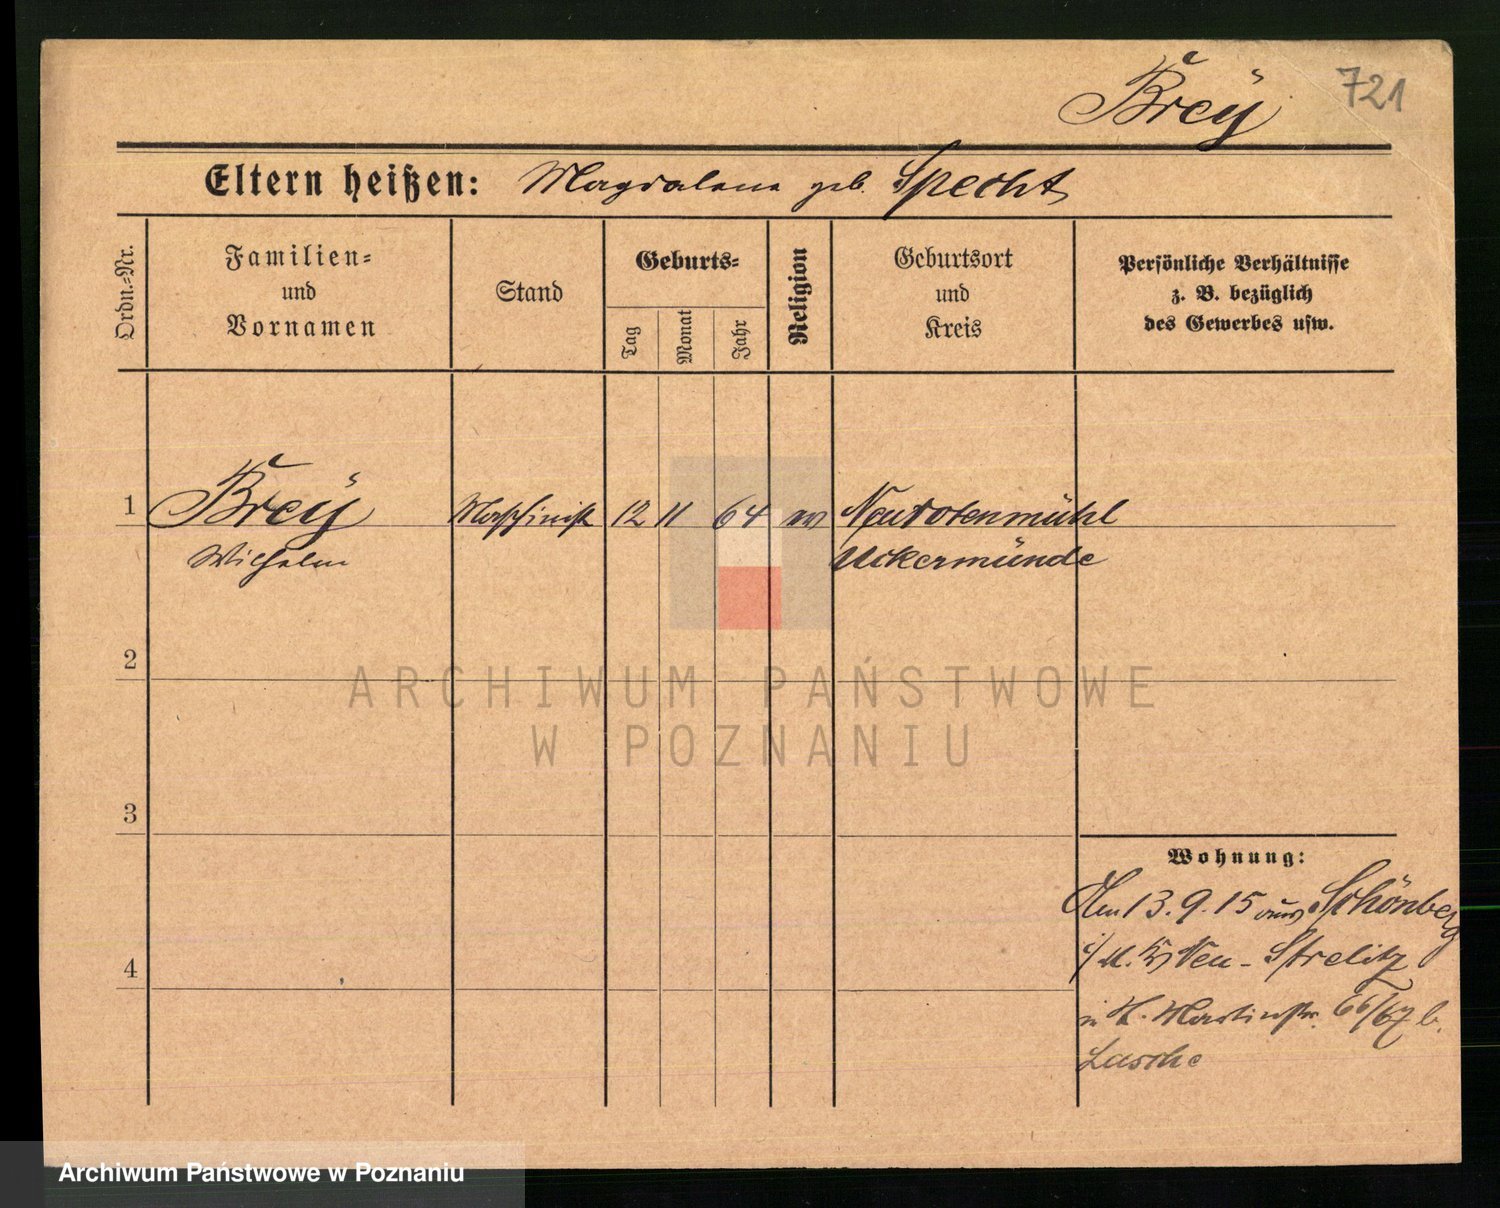 Breÿ 721
Eltern heißen: Magdalena geb. Specht
Ordn.-Nr.
Familien-
und
Vornamen
Stand
Geburts-
Tag
Monat
Jahr
Religion
Geburtsort
und
Kreis
Persönliche Verhältnisse
z. B. bezüglich
des Gewerbes usw.
1 Breÿ Maschinist 12 11 64 ev Neu
Wilhelm Uckermünde
2
3
4
Wohnung:
Am 13.9.15 aus Schönberg
i/M. Neu-Strelitz
in St. Martinstr. 66/67 b.
ARCHIWUM PAŃSTWOWE
W POZNANIU
Archiwum Państwowe w Poznaniu